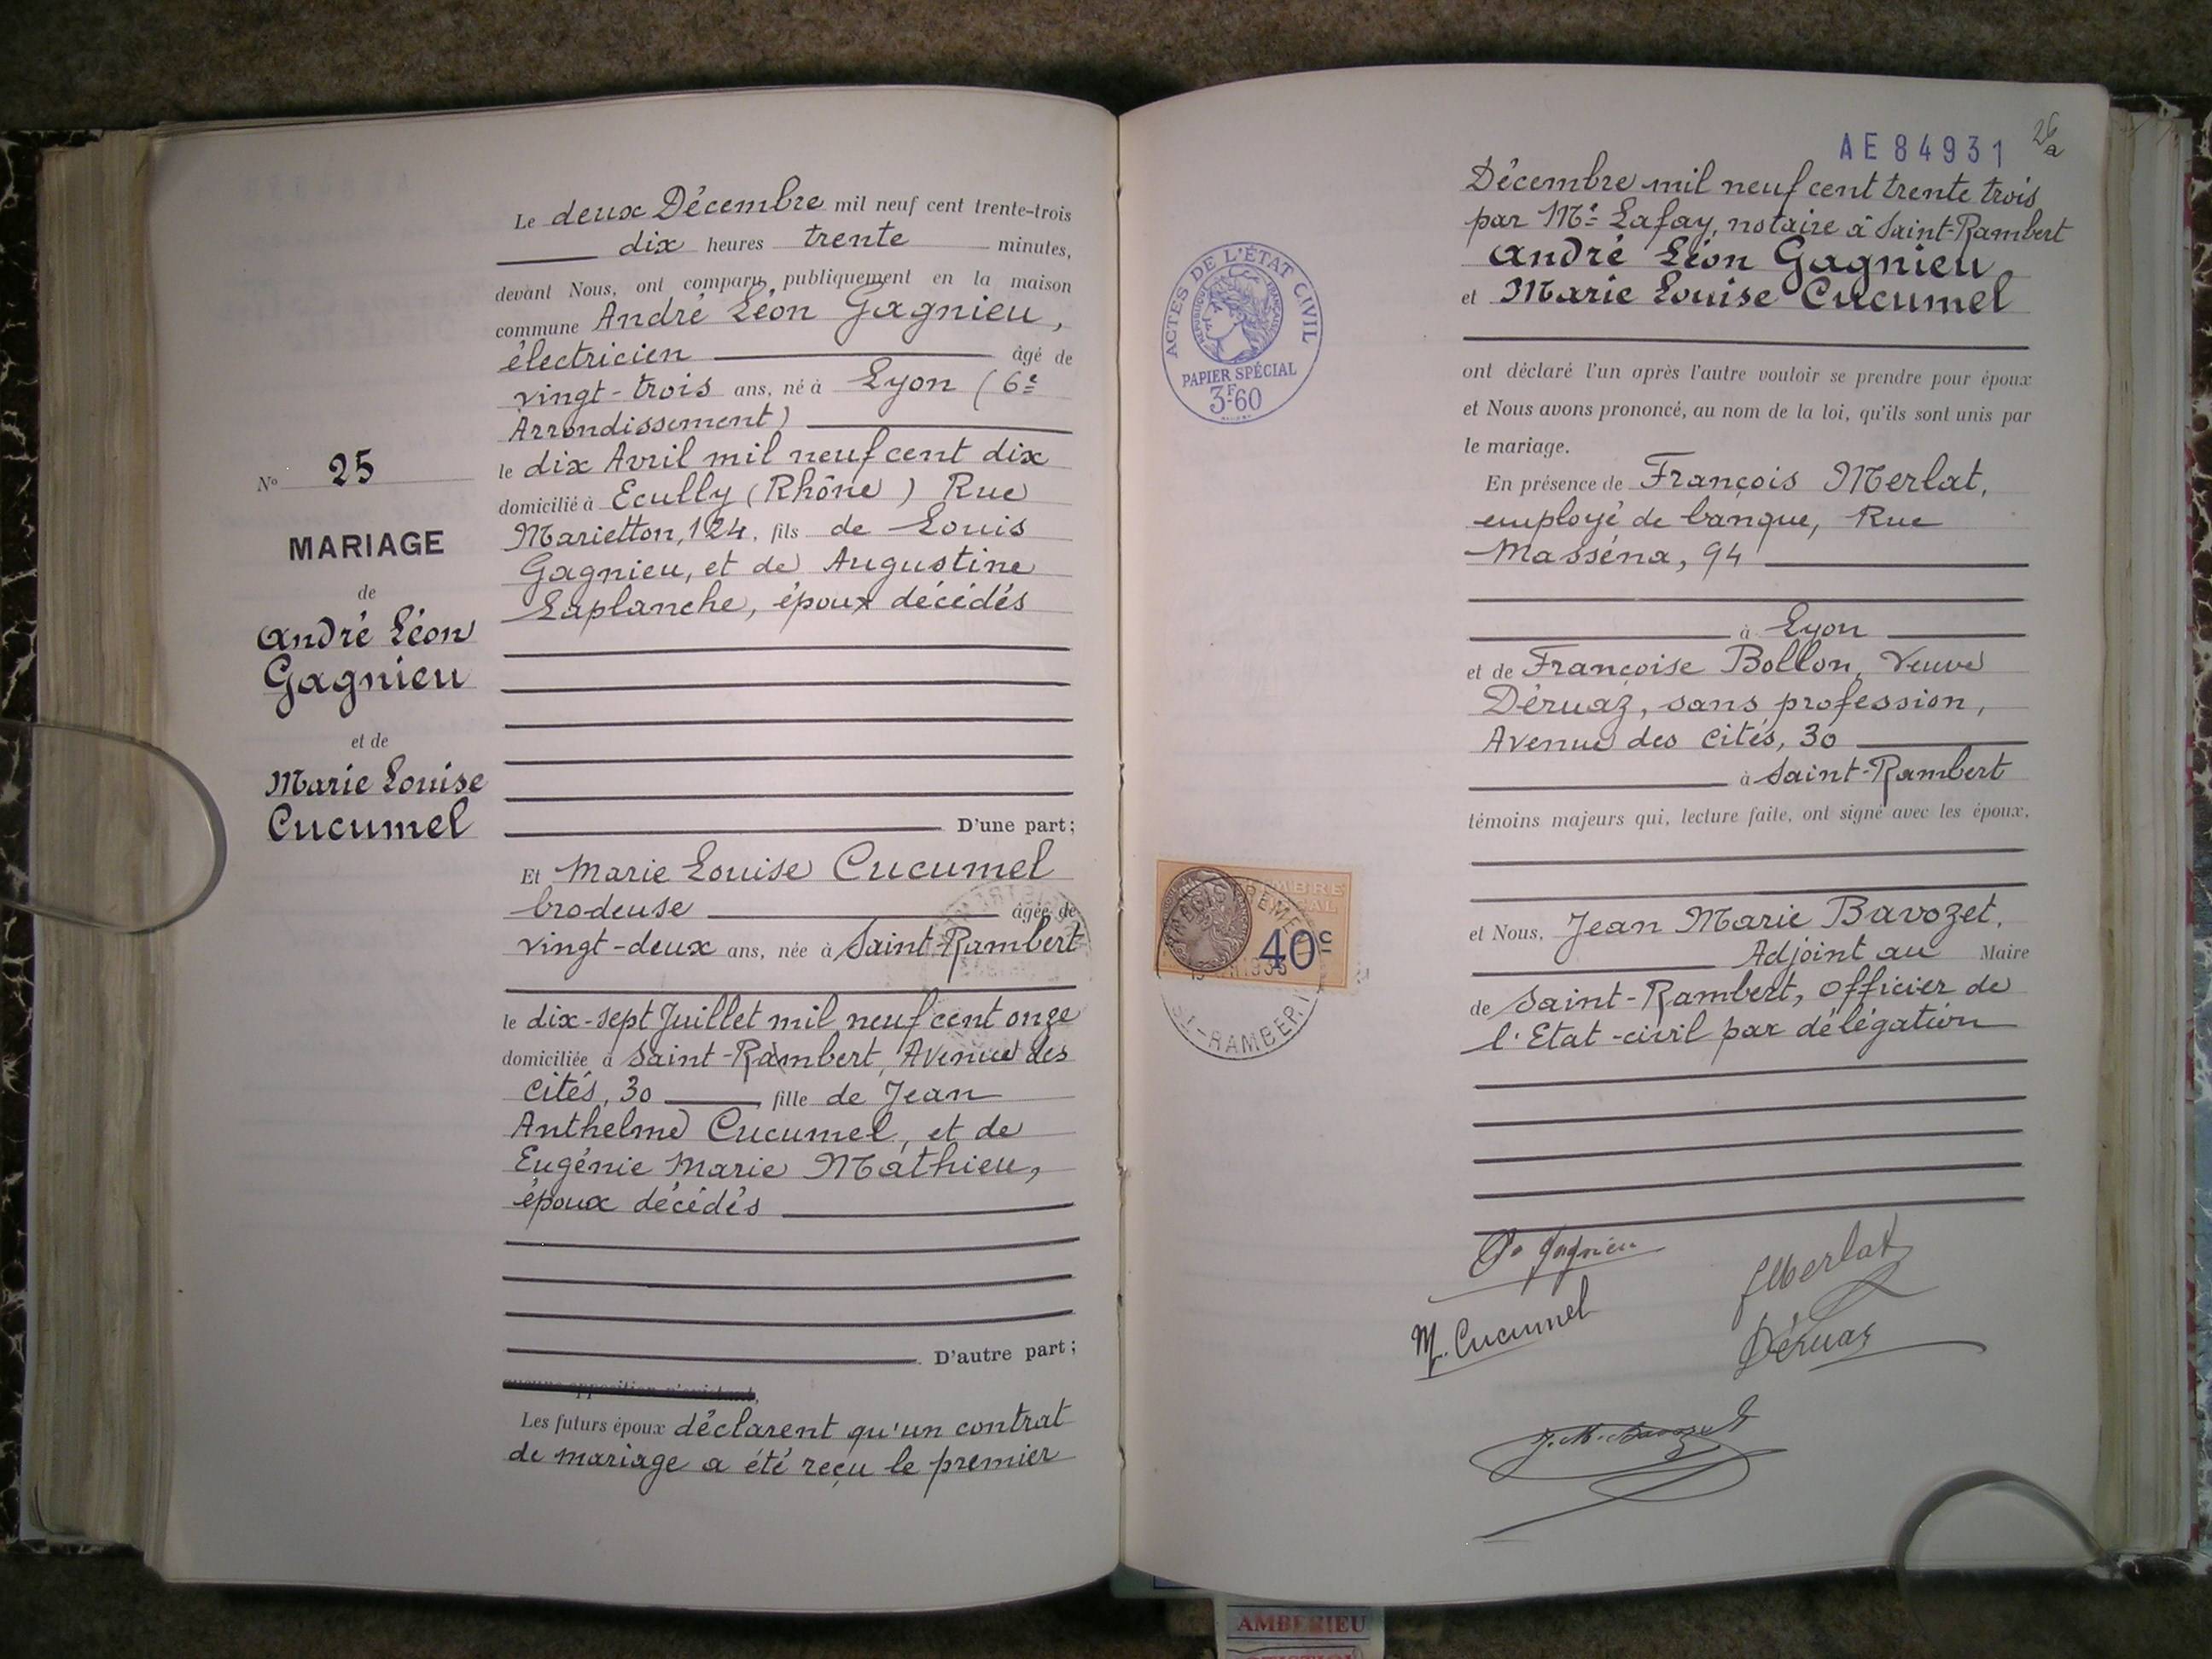 Le deux Décembre mil neuf cent trente-trois
dix heures trente minutes,
devant Nous, ont comparu publiquement en la maison
commune André Léon Gagnieu,
électricien âgé de
vingt-trois ans, né à Lyon (6e
Arrondissement)
le dix Avril mil neuf cent dix
domicilié à Ecully (Rhône) Rue
Marietton, 124, fils de Louis
Gagnieu, et de Augustine
Laplanche, époux décédés
D'une part;
No 25
MARIAGE
de
André Léon
Gagnieu
et de
Marie Louise
Cucumel
Et Marie Louise Cucumel
brodeuse âgée de
vingt-deux ans, née à Saint-Rambert
le dix-sept Juillet mil neuf cent onze
domiciliée à Saint-Rambert, Avenue des
Cités, 30 fille de Jean
Anthelme Cucumel, et de
Eugénie Marie Mathieu,
époux décédés
D'autre part;
aucune opposition n'existant,
Les futurs époux déclarent qu'un contrat
de mariage a été reçu le premier
AE84931
26
a
Décembre mil neuf cent trente trois
par Me Lafay, notaire à Saint-Rambert
André Léon Gagnieu
et Marie Louise Cucumel
ont déclaré l'un après l'autre vouloir se prendre pour époux
et Nous avons prononcé, au nom de la loi, qu'ils sont unis par
le mariage.
En présence de François Merlat,
employé de banque, Rue
Masséna, 94
à Lyon
et de Françoise Bollon, Veuve
Déruaz, sans profession,
Avenue des Cités, 30
à Saint-Rambert
témoins majeurs qui, lecture faite, ont signé avec les époux,
et Nous, Jean Marie Bavozet,
Adjoint au Maire
de Saint-Rambert, Officier de
l'Etat-civil par délégation
Gagnieu
FMerlat
M. Cucumel
Déruaz
J.M. Bavozet
ACTES DE L'ÉTAT CIVIL
RÉPUBLIQUE FRANÇAISE
PAPIER SPÉCIAL
3F60
TIMBRE
FISCAL
40c
ENREGISTREMENT
ST-RAMBERT
AMBERIEU